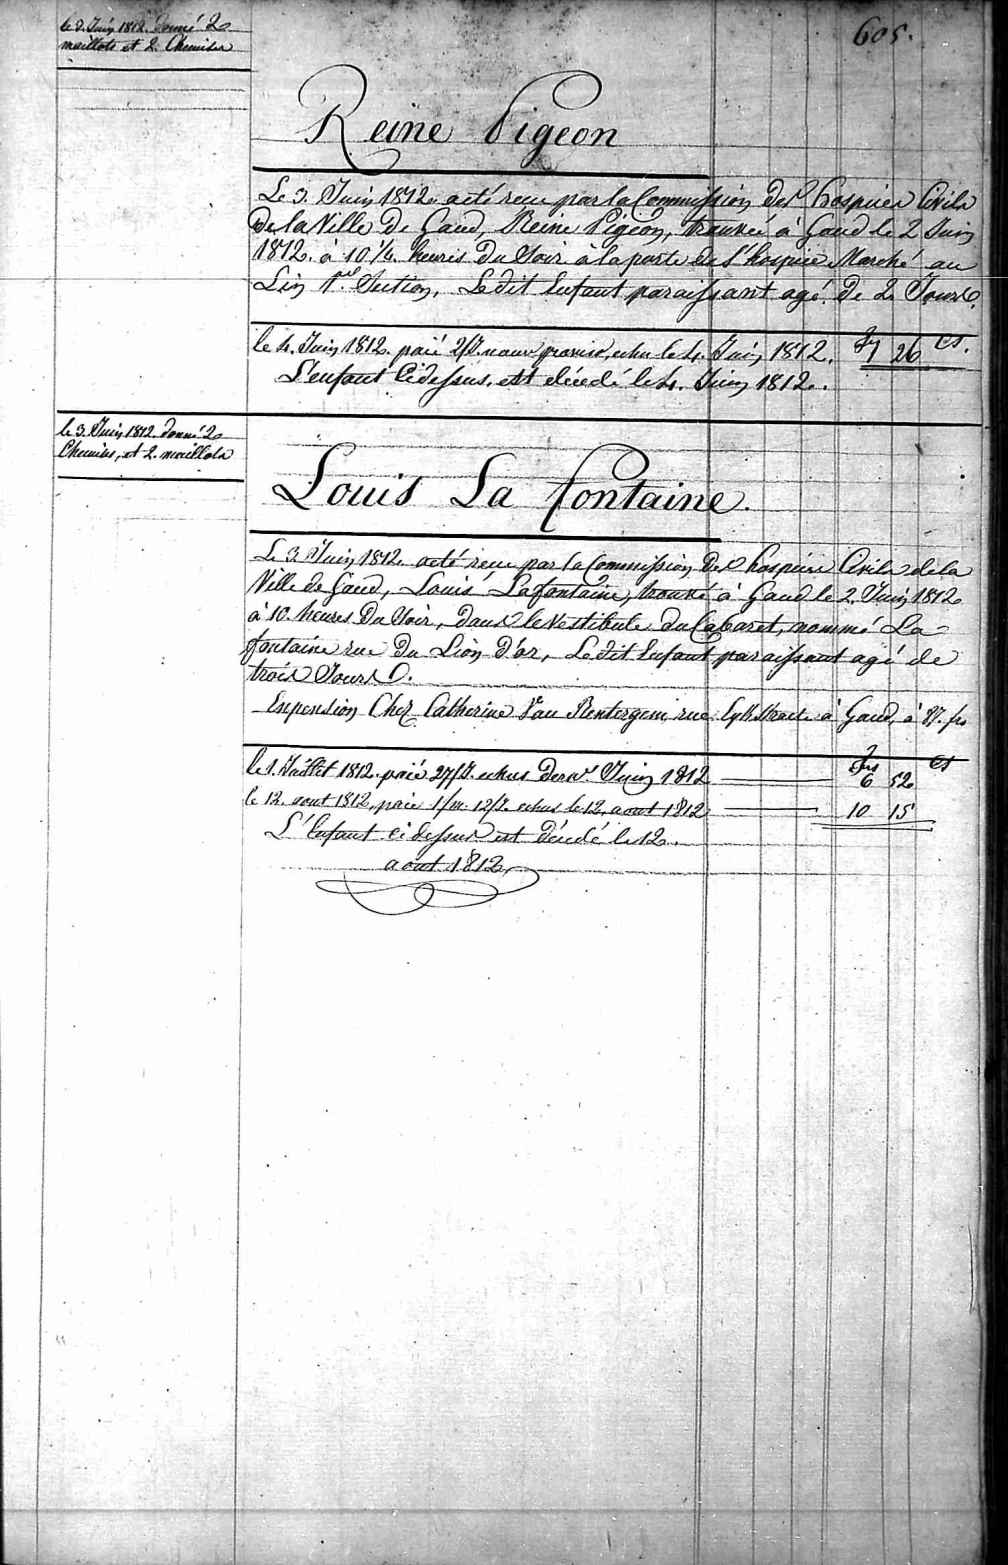 605.
le 3. Juin 1812. donné 2
maillots et 2. Chemises
Reine Pigeon
Le 3. Juin 1812. a été reçu par la Commission des hospices Civils
de la Ville de Gand, Reine Pigeon, trouvée à Gand le 2 Juin
1812. à 10 1/4. heures du Soir à la porte de l'hospice Marché au
Lin 1re Section, Ledit Enfant paraissant agé de 2 Jours.
le 4. Juin 1812. paié 2/J. echu le 4. Juin 1812. 26 cs.
L'enfant Cidessus, est décedé le 4. Juin 1812.
le 3. Juin 1812. donné 2
Chemises, et 2. maillots
Louis La fontaine.
Le 3 Juin 1812. a été reçu par la Commission des hospices Civils de la
Ville de Gand, Louis Lafontaine, trouvé à Gand le 2. Juin 1812
à 10. heures du Soir, dans le Vestibule du Cabaret, nommé La
fontaine rue du Lion d'or, Ledit Enfant paraissant agé de
trois Jours.
En pension Chez Catherine Van Rentergem rue à Gand, à 87. frs
frs cs
le 1. Juillet 1812. paié 27/J. echus Juin 1812 6 52
le 12. aout 1812, paié 1/m. 12/J. echus le 12. aout 1812 10 15
L'Enfant ci dessus est décedé le 12.
aout 1812,